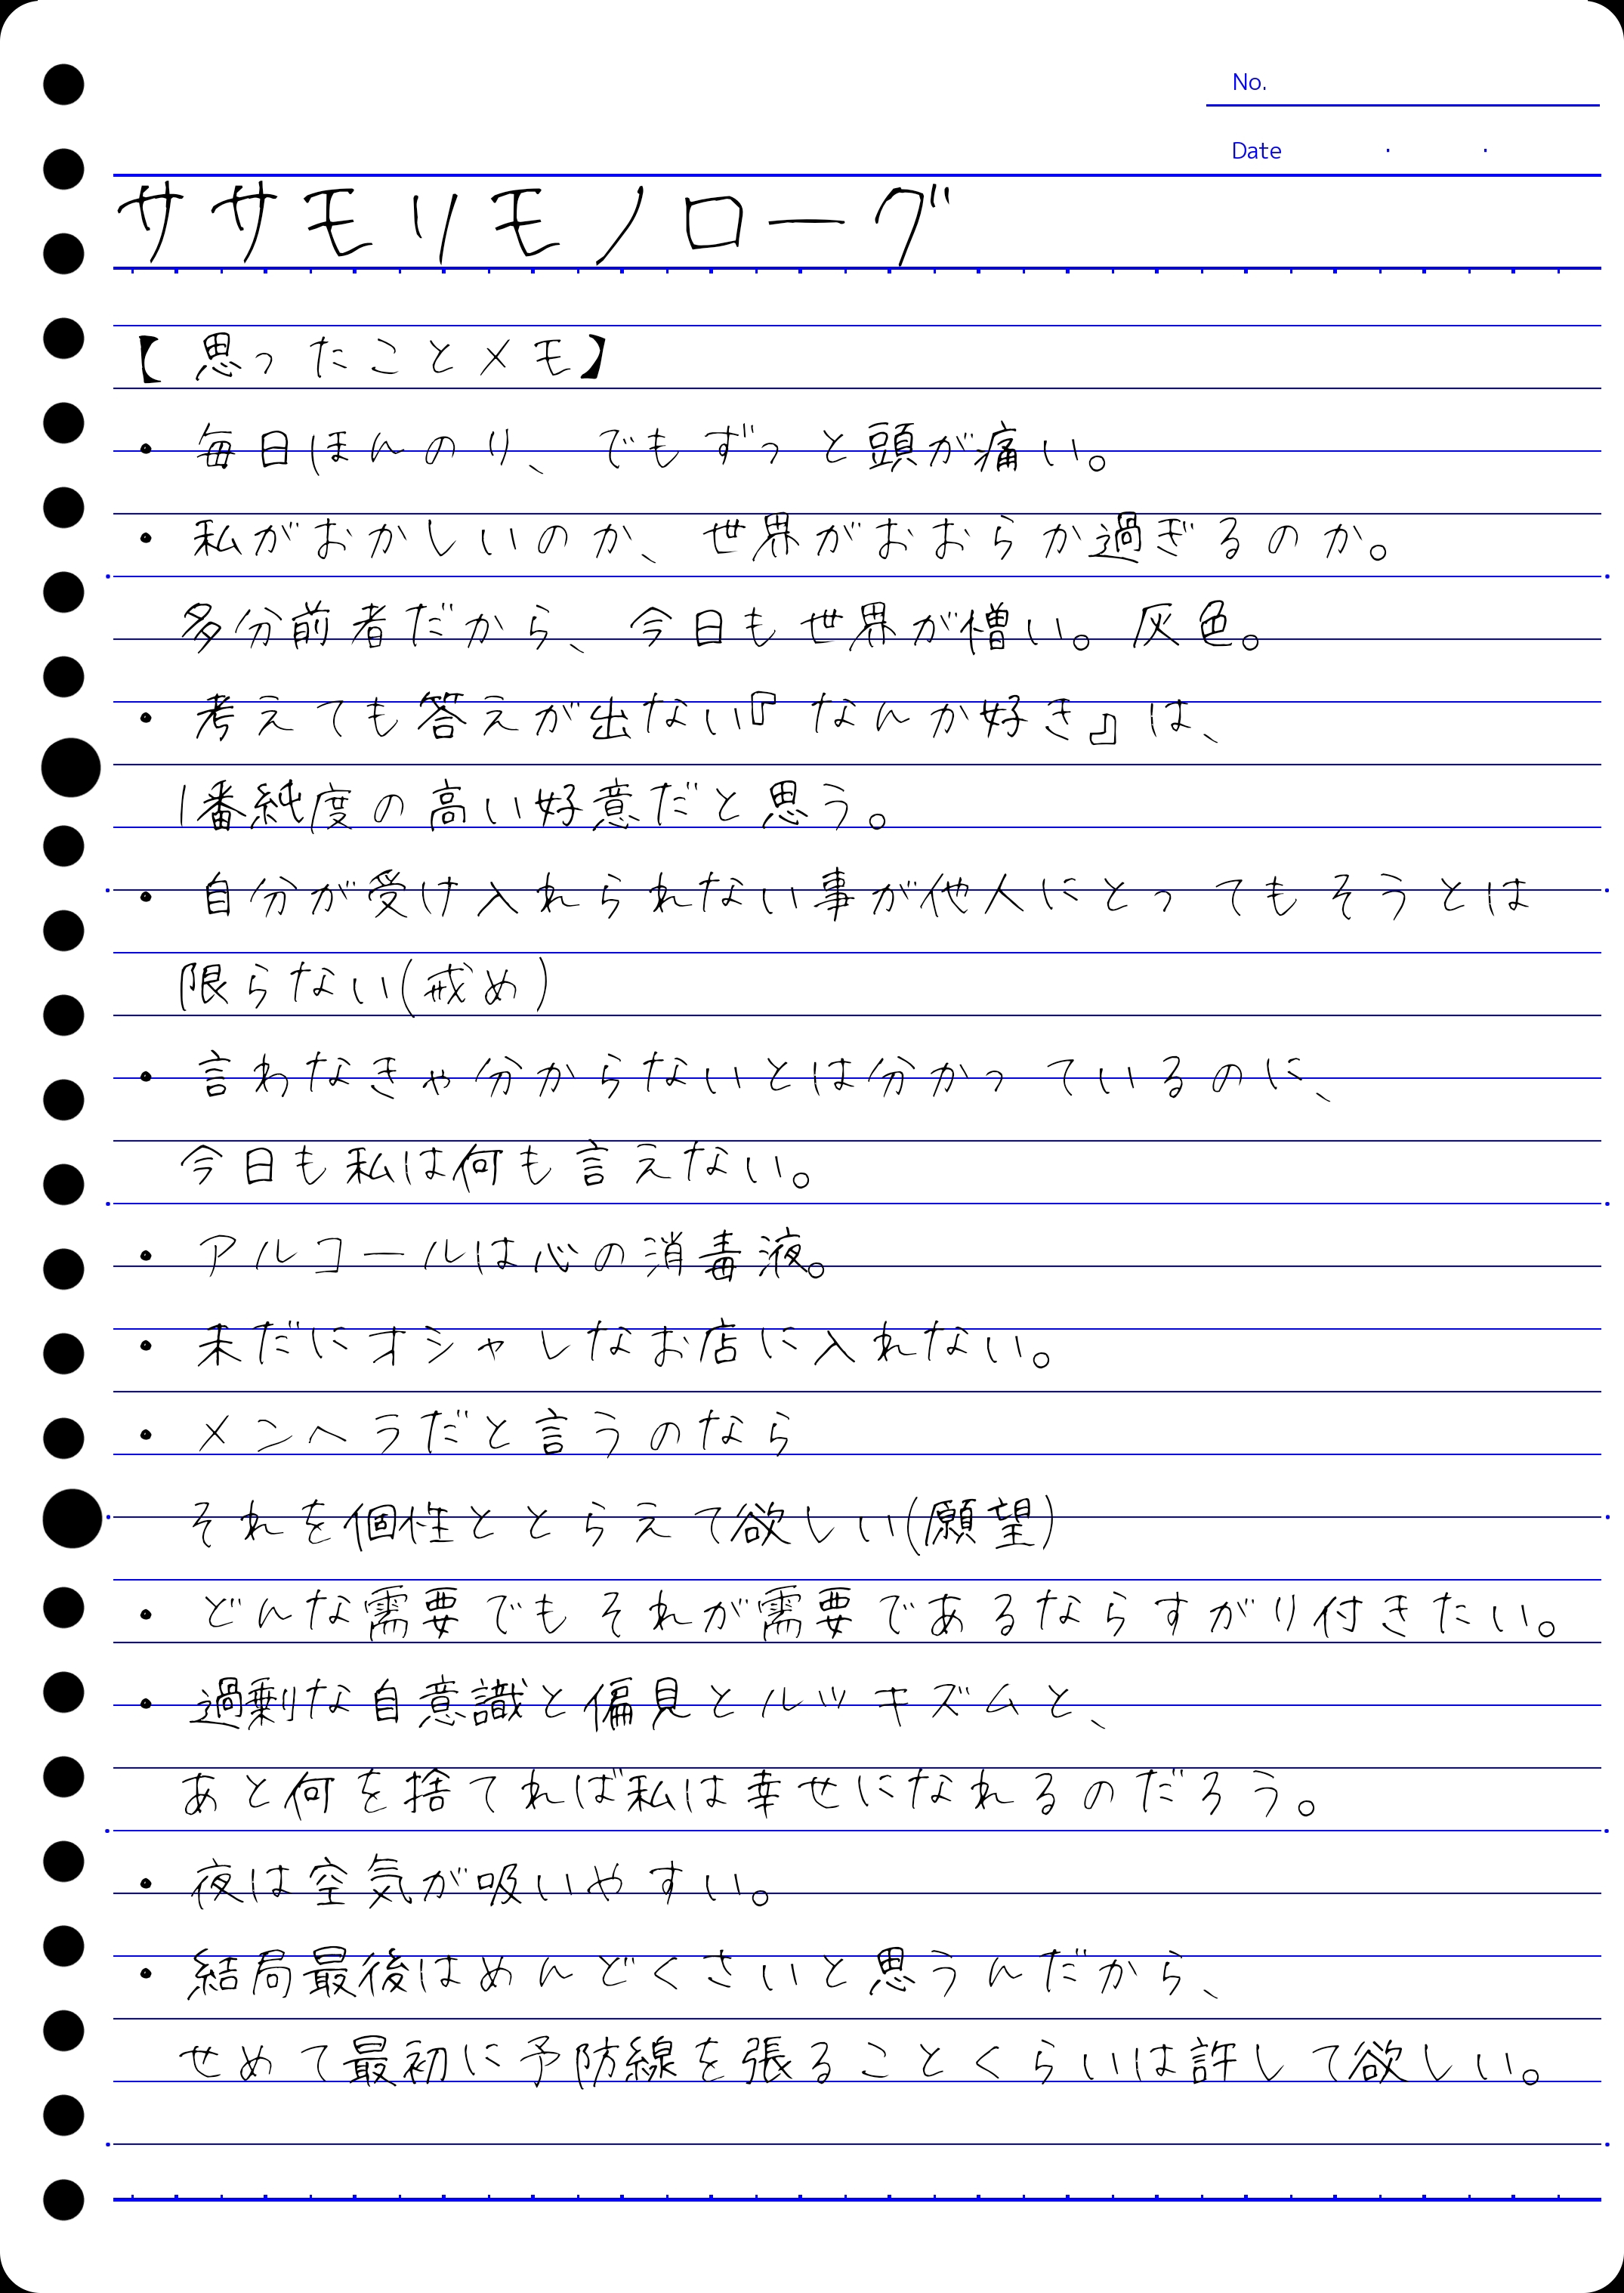 No.
Date ・ ・
ササモリモノローグ
【思ったことメモ】
・毎日ほんのり、でもずっと頭が痛い。
・私がおかしいのか、世界がおおらか過ぎるのか。
多分前者だから、今日も世界が憎い。灰色。
・考えても答えが出ない『なんか好き』は、
1番純度の高い好意だと思う。
・自分が受け入れられない事が他人にとってもそうとは
限らない(戒め)
・言わなきゃ分からないとは分かっているのに、
今日も私は何も言えない。
・アルコールは心の消毒液。
・未だにオシャレなお店に入れない。
・メンヘラだと言うのなら
それを個性ととらえて欲しい(願望)
・どんな需要でもそれが需要であるならすがり付きたい。
・過剰な自意識と偏見とルッキズムと、
あと何を捨てれば私は幸せになれるのだろう。
・夜は空気が吸いやすい。
・結局最後はめんどくさいと思うんだから、
せめて最初に予防線を張ることくらいは許して欲しい。